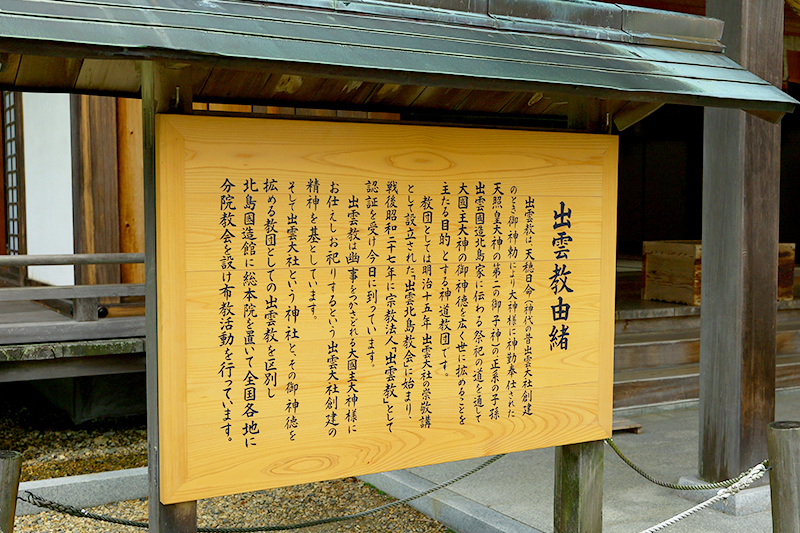 出雲教由緒
出雲教は、天穂日命（神代の昔出雲大社創建
のとき御神勅により大神様に神勤奉仕された
天照皇大神の第二の御子神）の正系の子孫
出雲国造北島家に伝わる祭祀の道を通して
大国主大神の御神徳を広く世に拡めることを
主たる目的とする神道教団です。
教団としては明治十五年出雲大社の崇敬講
として設立された「出雲北島教会」に始まり、
戦後昭和二十七年に宗教法人「出雲教」として
認証を受け今日に到っています。
出雲教は幽事をつかさどられる大国主大神様に
お仕えしお祀りするという出雲大社創建の
精神を基としています。
そして出雲大社という神社と、その御神徳を
拡める教団としての出雲教を区別し
北島国造館に総本院を置いて全国各地に
分院教会を設け布教活動を行っています。